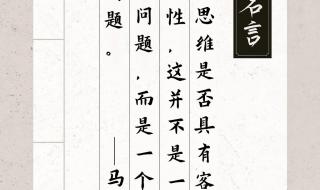 名言
思维是否具有客
性，这并不是一
问题，而是一个
问题。
——马